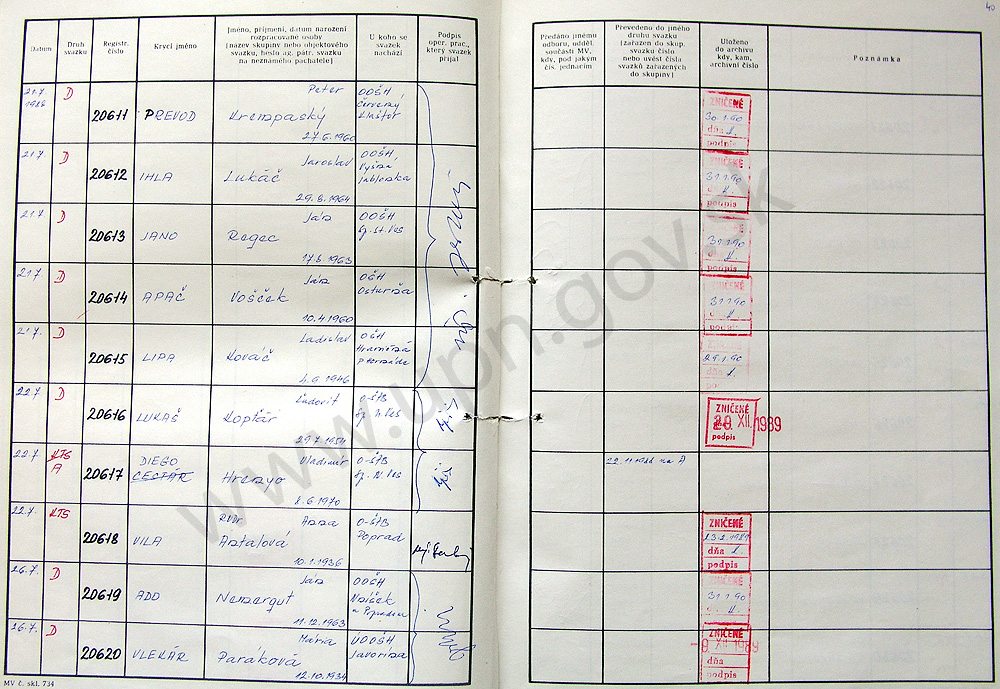 40
Datum
Druh svazku
Registr. číslo
Krycí jméno
Jméno, příjmení, datum narození
rozpracované osoby
(název skupiny nebo objektového
svazku, heslo ag. pátr. svazku
na neznámého pachatele)
U koho se
svazek
nachází
Podpis
oper. prac.,
který svazek
přijal
Předáno jinému
odboru, odděl.
součásti MV,
kdy, pod jakým
čís. jednacím
Převedeno do jiného
druhu svazku
(zařazen do skup.
svazku číslo
nebo uvést čísla
svazků zařazených
do skupiny)
Uloženo
do archivu
kdy, kam,
archivní číslo
Poznámka
21.7. 1988 D 20611 PREVOD Peter
Krempaský
27.6.1960
OOŠH
Červený
Kláštor
ZNIČENÉ
30.1.90
dňa
podpis
21.7 D 20612 IHLA Jaroslav
Lukáč
29.8.1964
OOŠH
Vyšná
ZNIČENÉ
31.1.90
podpis
21.7 D 20613 JANO Ján
Regec
17.6.1963
OOŠH
Sp. St. Ves
31.1.90
podpis
21.7 D 20614 APAČ Ján
Vošček
10.4.1960
OŠH
Osturňa
31.1.90
21.7. D 20615 LIPA Ladislav
Kováč
4.6.1946
29.1.90
22.7. D 20616 LUKAŠ Ľudovít
Koptár
29.7.1954
O-ŠTB
Sp. N. Ves
ZNIČENÉ
20 XII. 1989
podpis
22.7 KTS
A 20617 DIEGO
CESTÁR
Vladimír
8.6.1970
O-ŠTB
Sp. N. Ves
22.11.1988 na A
22.7. KTS 20618 VILA Anna
Antalová
10.1.1936
O-ŠTB
Poprad
ZNIČENÉ
dňa
podpis
26.7. D 20619 ADO Ján
Nemergut
11.12.1963
OOŠH
ZNIČENÉ
31.1.90
podpis
26.7. D 20620 VLEKÁR Mária
Paráková
12.10.1934
Javorina
ZNIČENÉ
-8 XII. 1989
dňa
podpis
MV č. skl. 734
www.upn.gov.sk